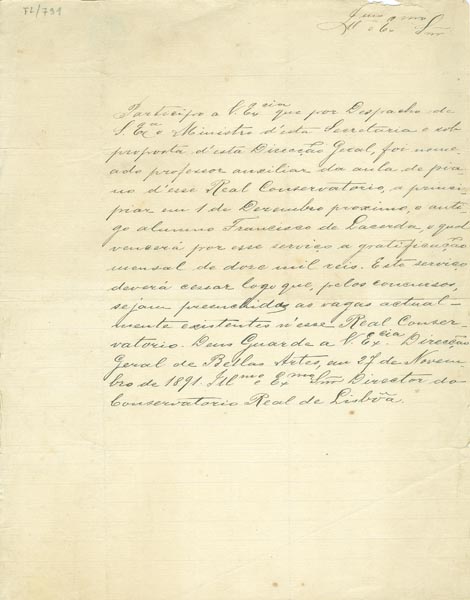 72/791
Illmo e Exmo Snr
Participo a V. Excia que por Despacho de
S. Exa o Ministro d'esta Secretaria e sob
proposta d'esta Direcção Geral, foi nome-
ado professor auxiliar da aula de pia-
no d'esse Real Conservatorio, a princi-
piar em 1 de Dezembro proximo, o anti-
go alumno Francisco de Lacerda, o qual
vencerá por esse serviço a gratificação
mensal de doze mil reis. Este serviço
deverá cessar logo que, pelos concursos,
sejam preenchidas as vagas actual-
mente existentes n'esse Real Conser-
vatorio. Deus Guarde a V. Excia. Direcção
Geral de Bellas Artes, em 27 de Novem-
bro de 1891. Illmo e Exmo Snr Director do
Conservatorio Real de Lisboa.